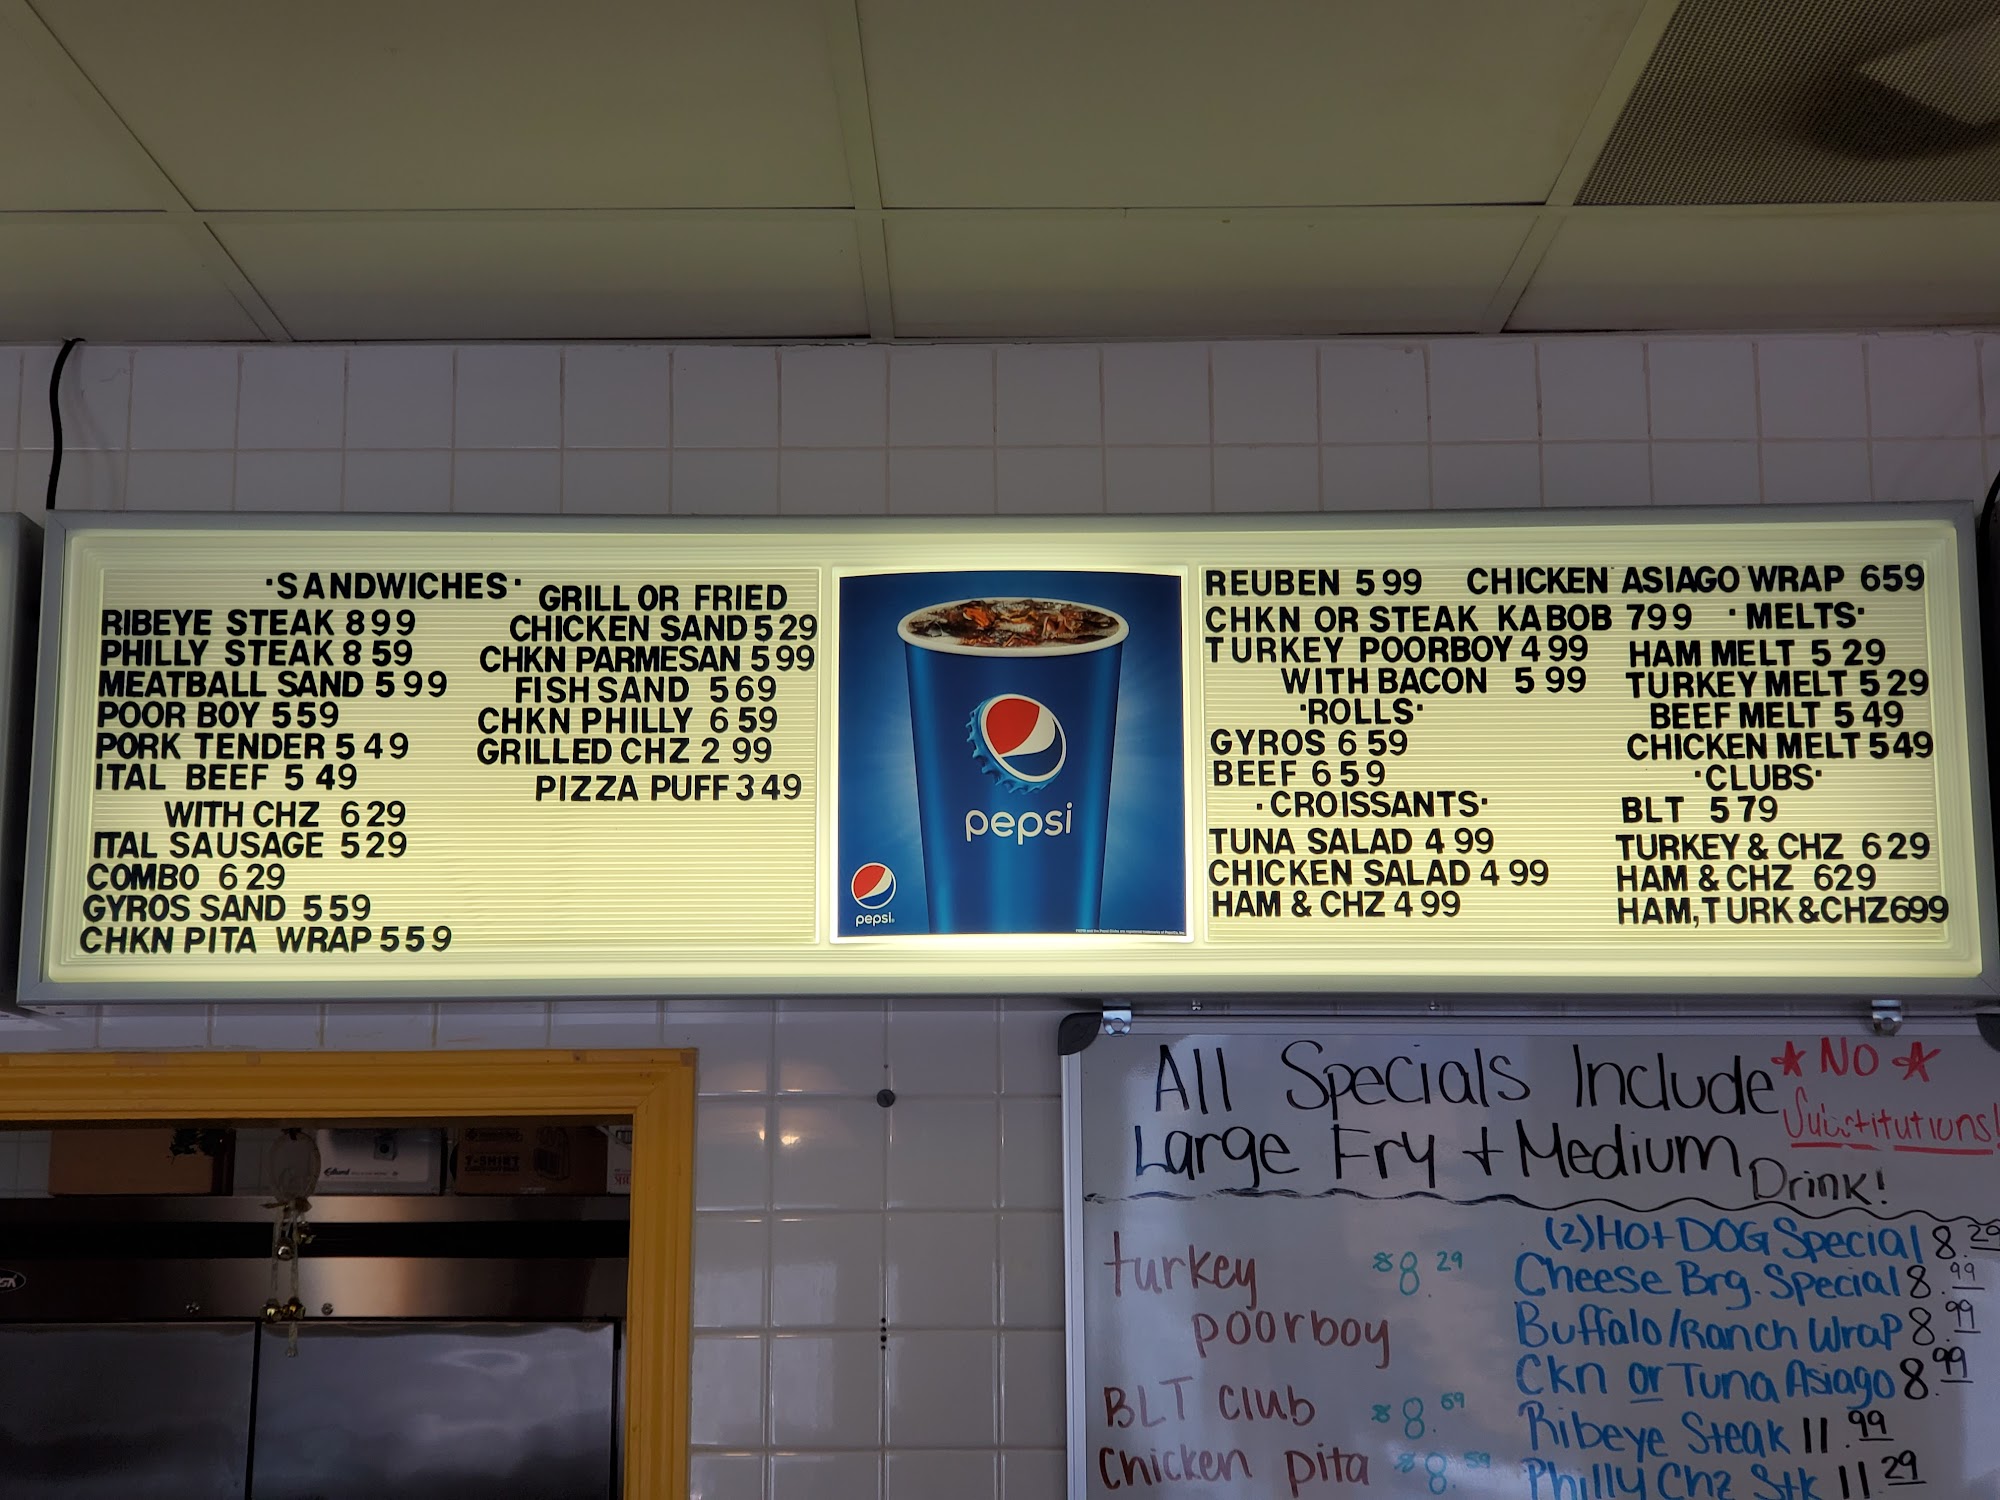 ·SANDWICHES·
RIBEYE STEAK 8 99
PHILLY STEAK 8 59
MEATBALL SAND 5 99
POOR BOY 5 59
PORK TENDER 5 49
ITAL BEEF 5 49
WITH CHZ 6 29
ITAL SAUSAGE 5 29
COMBO 6 29
GYROS SAND 5 59
CHKN PITA WRAP 5 59
GRILL OR FRIED
CHICKEN SAND 5 29
CHKN PARMESAN 5 99
FISH SAND 5 69
CHKN PHILLY 6 59
GRILLED CHZ 2 99
PIZZA PUFF 3 49
pepsi
pepsi
REUBEN 5 99 CHICKEN ASIAGO WRAP 6 59
CHKN OR STEAK KABOB 7 99
TURKEY POORBOY 4 99
WITH BACON 5 99
·ROLLS·
GYROS 6 59
BEEF 6 59
·CROISSANTS·
TUNA SALAD 4 99
CHICKEN SALAD 4 99
HAM & CHZ 4 99
·MELTS·
HAM MELT 5 29
TURKEY MELT 5 29
BEEF MELT 5 49
CHICKEN MELT 5 49
·CLUBS·
BLT 5 79
TURKEY & CHZ 6 29
HAM & CHZ 6 29
HAM, TURK & CHZ 6 99
All Specials Include
Large Fry + Medium Drink!
* NO *
Substitutions!
turkey $8.29
poorboy
BLT club $8.59
Chicken pita $8.59
(2) Hot DOG Special 8.29
Cheese Brg. Special 8.99
Buffalo/Ranch Wrap 8.99
Ckn or Tuna Asiago 8.99
Ribeye Steak 11.99
Philly Chz Stk 11.29
T-SHIRT